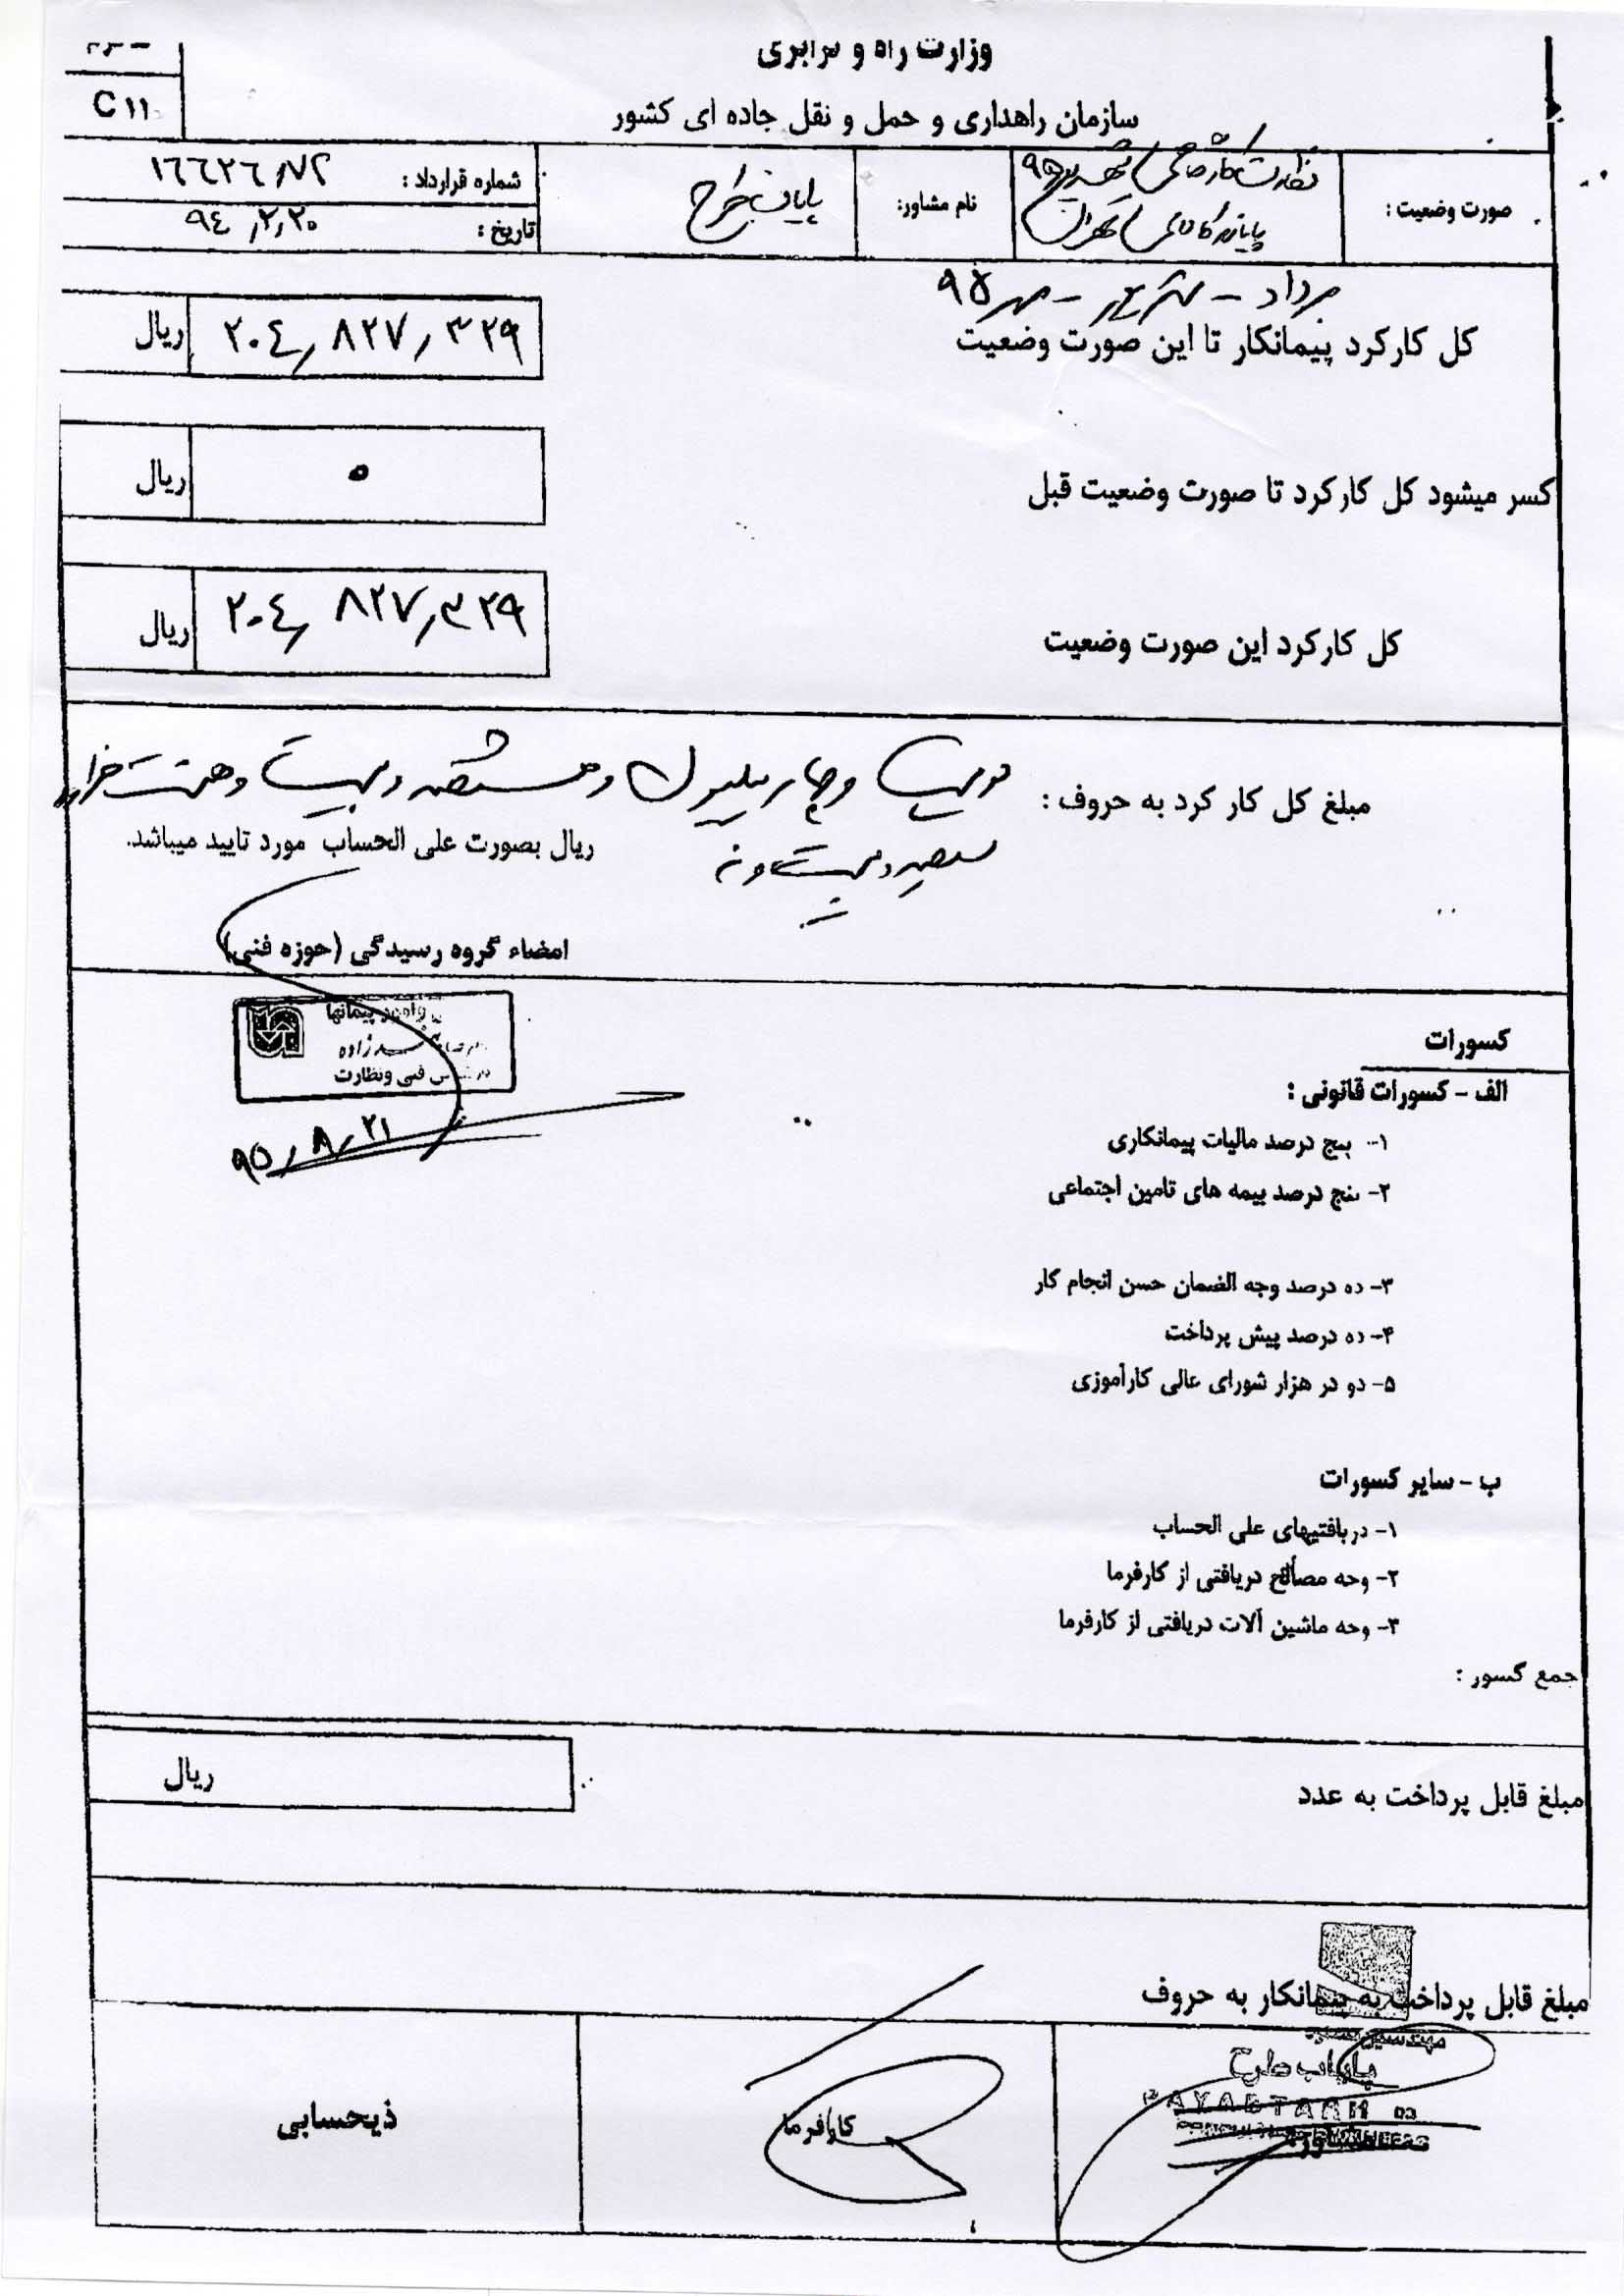 وزارت راه و ترابری
سازمان راهداری و حمل و نقل جاده ای کشور
C ۱۱
صورت وضعیت :
پایانه کالای تهران
نام مشاور:
پایاب طرح
شماره قرارداد :
۱۶۶۲۶/۷۲
تاریخ :
۹۴/۲/۲۰
مرداد - شهریور - مهر ۹۵
کل کارکرد پیمانکار تا این صورت وضعیت
۲۰۴/۸۲۷/۳۲۹
ریال
کسر میشود کل کارکرد تا صورت وضعیت قبل
۰
ریال
کل کارکرد این صورت وضعیت
۲۰۴/۸۲۷/۳۲۹
ریال
مبلغ کل کار کرد به حروف :
دویست و چهار میلیون و هشتصد و بیست و هفت هزار و
سیصد و بیست و نه
ریال بصورت علی الحساب مورد تایید میباشد.
امضاء گروه رسیدگی (حوزه فنی)
امور پیمانها
فنی ونظارت
۹۵/۸/۲۱
کسورات
الف - کسورات قانونی :
۱- پنج درصد مالیات پیمانکاری
۲- پنج درصد بیمه های تامین اجتماعی
۳- ده درصد وجه الضمان حسن انجام کار
۴- ده درصد پیش پرداخت
۵- دو در هزار شورای عالی کارآموزی
ب - سایر کسورات
۱- دریافتیهای علی الحساب
۲- وجه مصالح دریافتی از کارفرما
۳- وجه ماشین آلات دریافتی از کارفرما
جمع کسور :
مبلغ قابل پرداخت به عدد
ریال
مبلغ قابل پرداخت به پیمانکار به حروف
مهندسین مشاور
پایاب طرح
PAYABTARH co
مشاور
کارفرما
ذیحسابی